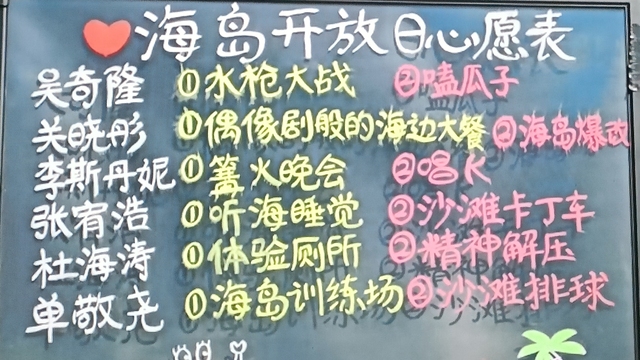 海岛开放日心愿表
吴奇隆 ①水枪大战 ②嗑瓜子
关晓彤 ①偶像剧般的海边大餐 ②海岛爆改
李斯丹妮 ①篝火晚会 ②唱K
张宥浩 ①听海睡觉 ②沙滩卡丁车
杜海涛 ①体验厕所 ②精神解压
单敬尧 ①海岛训练场 ②沙滩排球